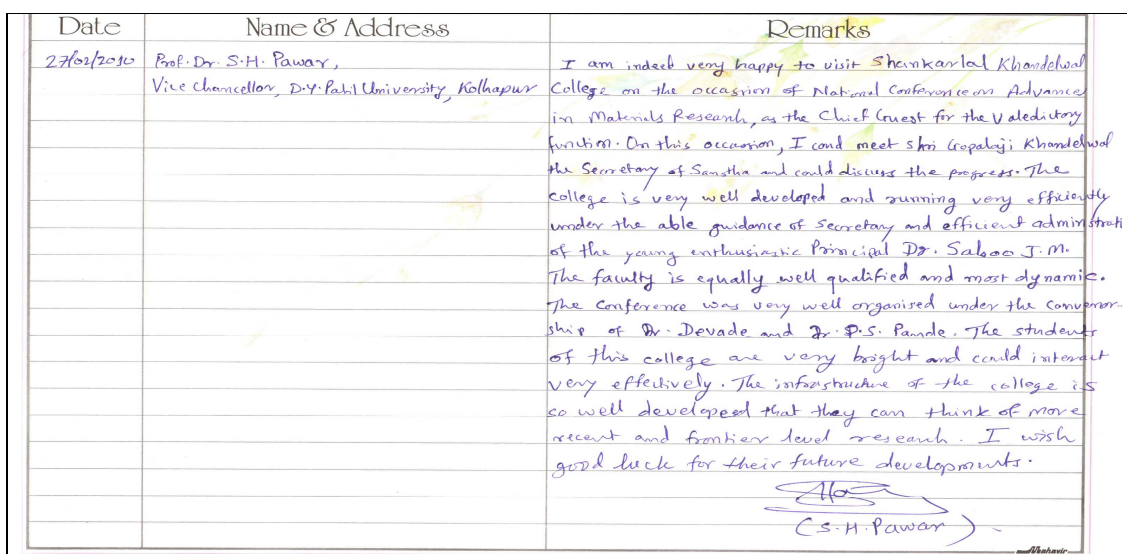 Date Name & Address Remarks
27/02/2010 Prof. Dr. S.H. Pawar,
Vice Chancellor, D.Y. Patil University, Kolhapur
I am indeed very happy to visit Shankarlal Khandelwal
College on the occasion of National Conference on Advance
in Materials Research, as the Chief Guest for the Valedictory
function. On this occasion, I coud meet Shri Gopalaji Khandelwal
the Secretary of Sanstha and could discuss the progress. The
college is very well developed and running very efficiently
under the able guidance of secretary and efficient administrati
of the young enthusiastic Principal Dr. Saboo J.M.
The faculty is equally well qualified and most dynamic.
The Conference was very well organised under the convenor-
ship of Dr. Devade and Dr. P.S. Pande. The students
of this college are very bright and could interact
very effectively. The infrastructure of the college is
so well developeed that they can think of more
recent and frontier level research. I wish
good luck for their future developments.
(S.H. Pawar)